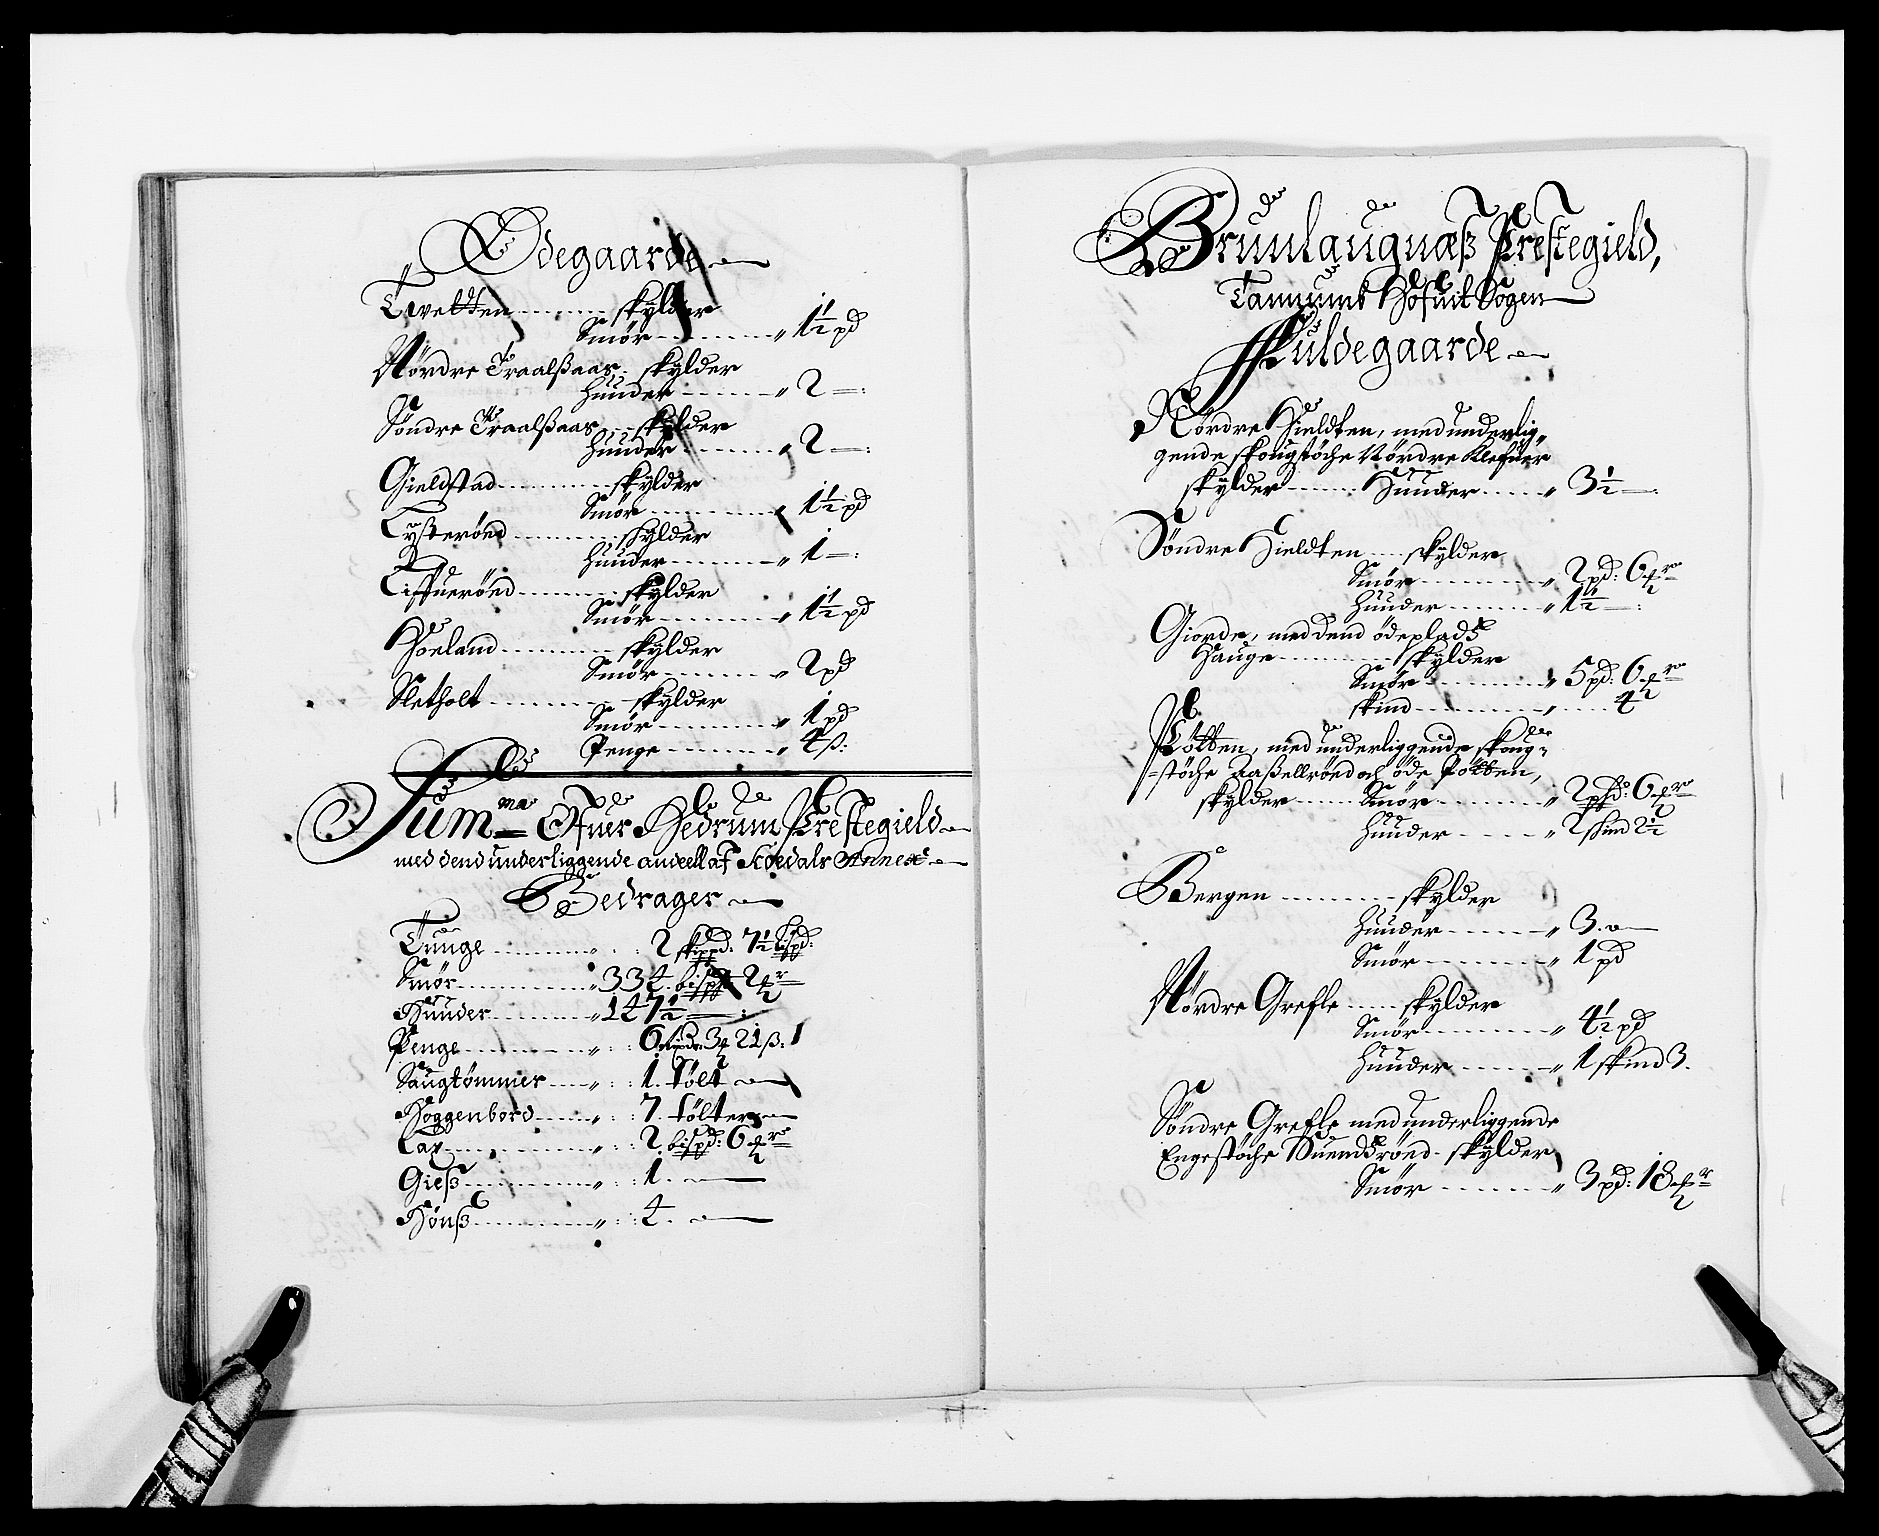 Ødegaarde
Tvetten skylder
Smör 1½ pd
Nördre Traalßaas skylder
Huuder 2
Söndre Traalßaas skylder
Huuder 2
Gieldstad skylder
Smör 1½ pd
Tyßerönd skylder
Huuder 1
Liffuerönd skylder
Smör 1½ pd
Hoeland skylder
Smör 2 pd
Sletholt skylder
Smör 1 pd
Penge 4 ß:
Summa Ofuer Hedrum Prestegield
med dend underliggende andeell af Koedals Annex
Bedrager
Tunge 2 skippd: 7½ bispd:
Smör 334 bispd 2
Huuder 147½
Penge 6 3 21 ß: 1
Saugtömmer 1 tölt
Hoggenbord 7 tölter
Lax 2 bispd: 6
Gieß 1
Hönß 4
Brunlaugnæß Prestegield,
Tannums Hofuit Sogen
Fuldegaarde
Nördre Hieldten, med underlig-
gende skougstöche Nördre Klefuer
skylder Huuder 3½
Söndre Hieldten skylder
Smör 2 pd: 6
Huuder 1½
Giorde, med dend ödeplads
Hauge skylder
Smör 5 pd: 6
skind 4
Pötten, med underliggende skoug-
stöche Aaßellrönd och öde Pötten,
skylder Smör 2 6
Huuder 2 skind 2½
Bergen skylder
Huuder 3
Smör 1 pd
Nördre Grefle skylder
Smör 4½ pd
Huuder 1 skind 3.
Söndre Grefle med underliggende
Engestöche Suendsrönd skylder
Smör 3 pd: 18